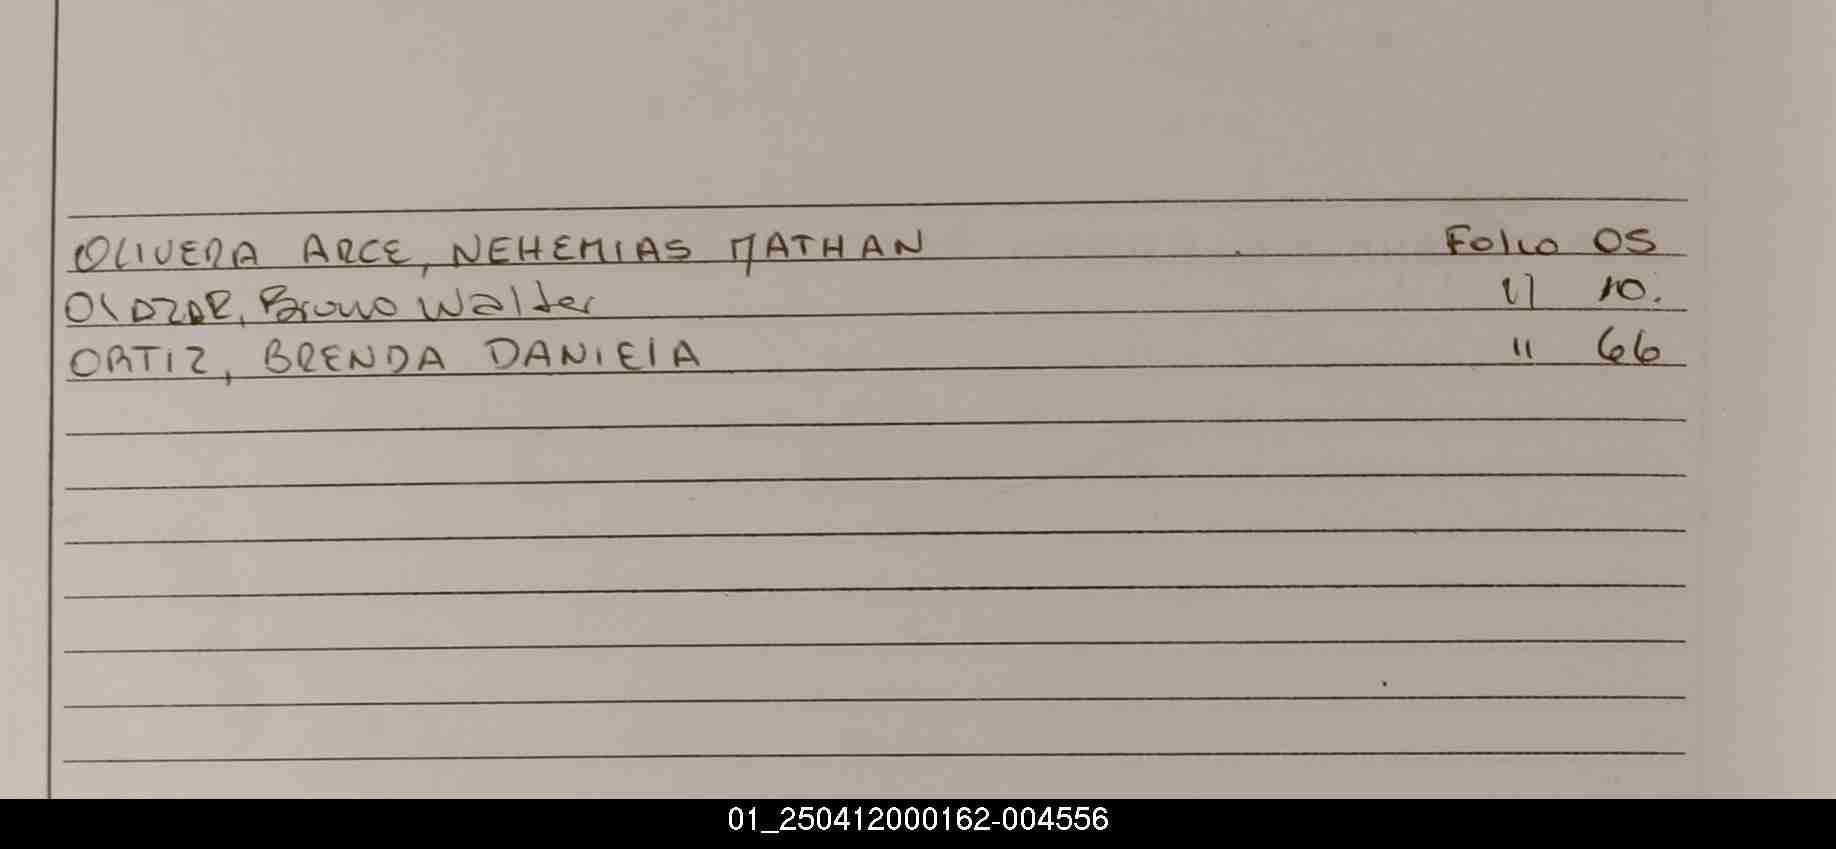 OLIVERA ARCE, NEHEMIAS NATHAN Folio 05
Bruno Walter " 10.
ORTIZ, BRENDA DANIELA " 66
01_250412000162-004556